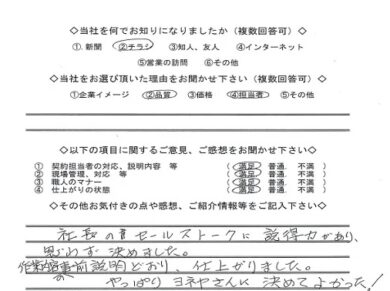 ◇当社を何でお知りになりましたか（複数回答可）◇
①. 新聞 ②チラシ ③知人、友人 ④インターネット
⑤営業の訪問 ⑥その他
◇当社をお選び頂いた理由をお聞かせ下さい（複数回答可）◇
①企業イメージ ②品質 ③価格 ④担当者 ⑤その他
◇以下の項目に関するご意見、ご感想をお聞かせ下さい◇
① 契約担当者の対応、説明内容 等 ( 満足 普通. 不満 )
② 現場管理、対応 等 ( 満足 普通. 不満 )
③ 職人のマナー ( 満足 普通. 不満 )
④ 仕上がりの状態 ( 満足 普通. 不満 )
◇その他お気付きの点や感想、ご紹介情報等をご記入下さい◇
社長の セールストークに 説得力があり、
思わず 決めました。
作業 の 事前説明どおり、仕上がりました。
やっぱり ヨネヤさんに 決めてよかった！